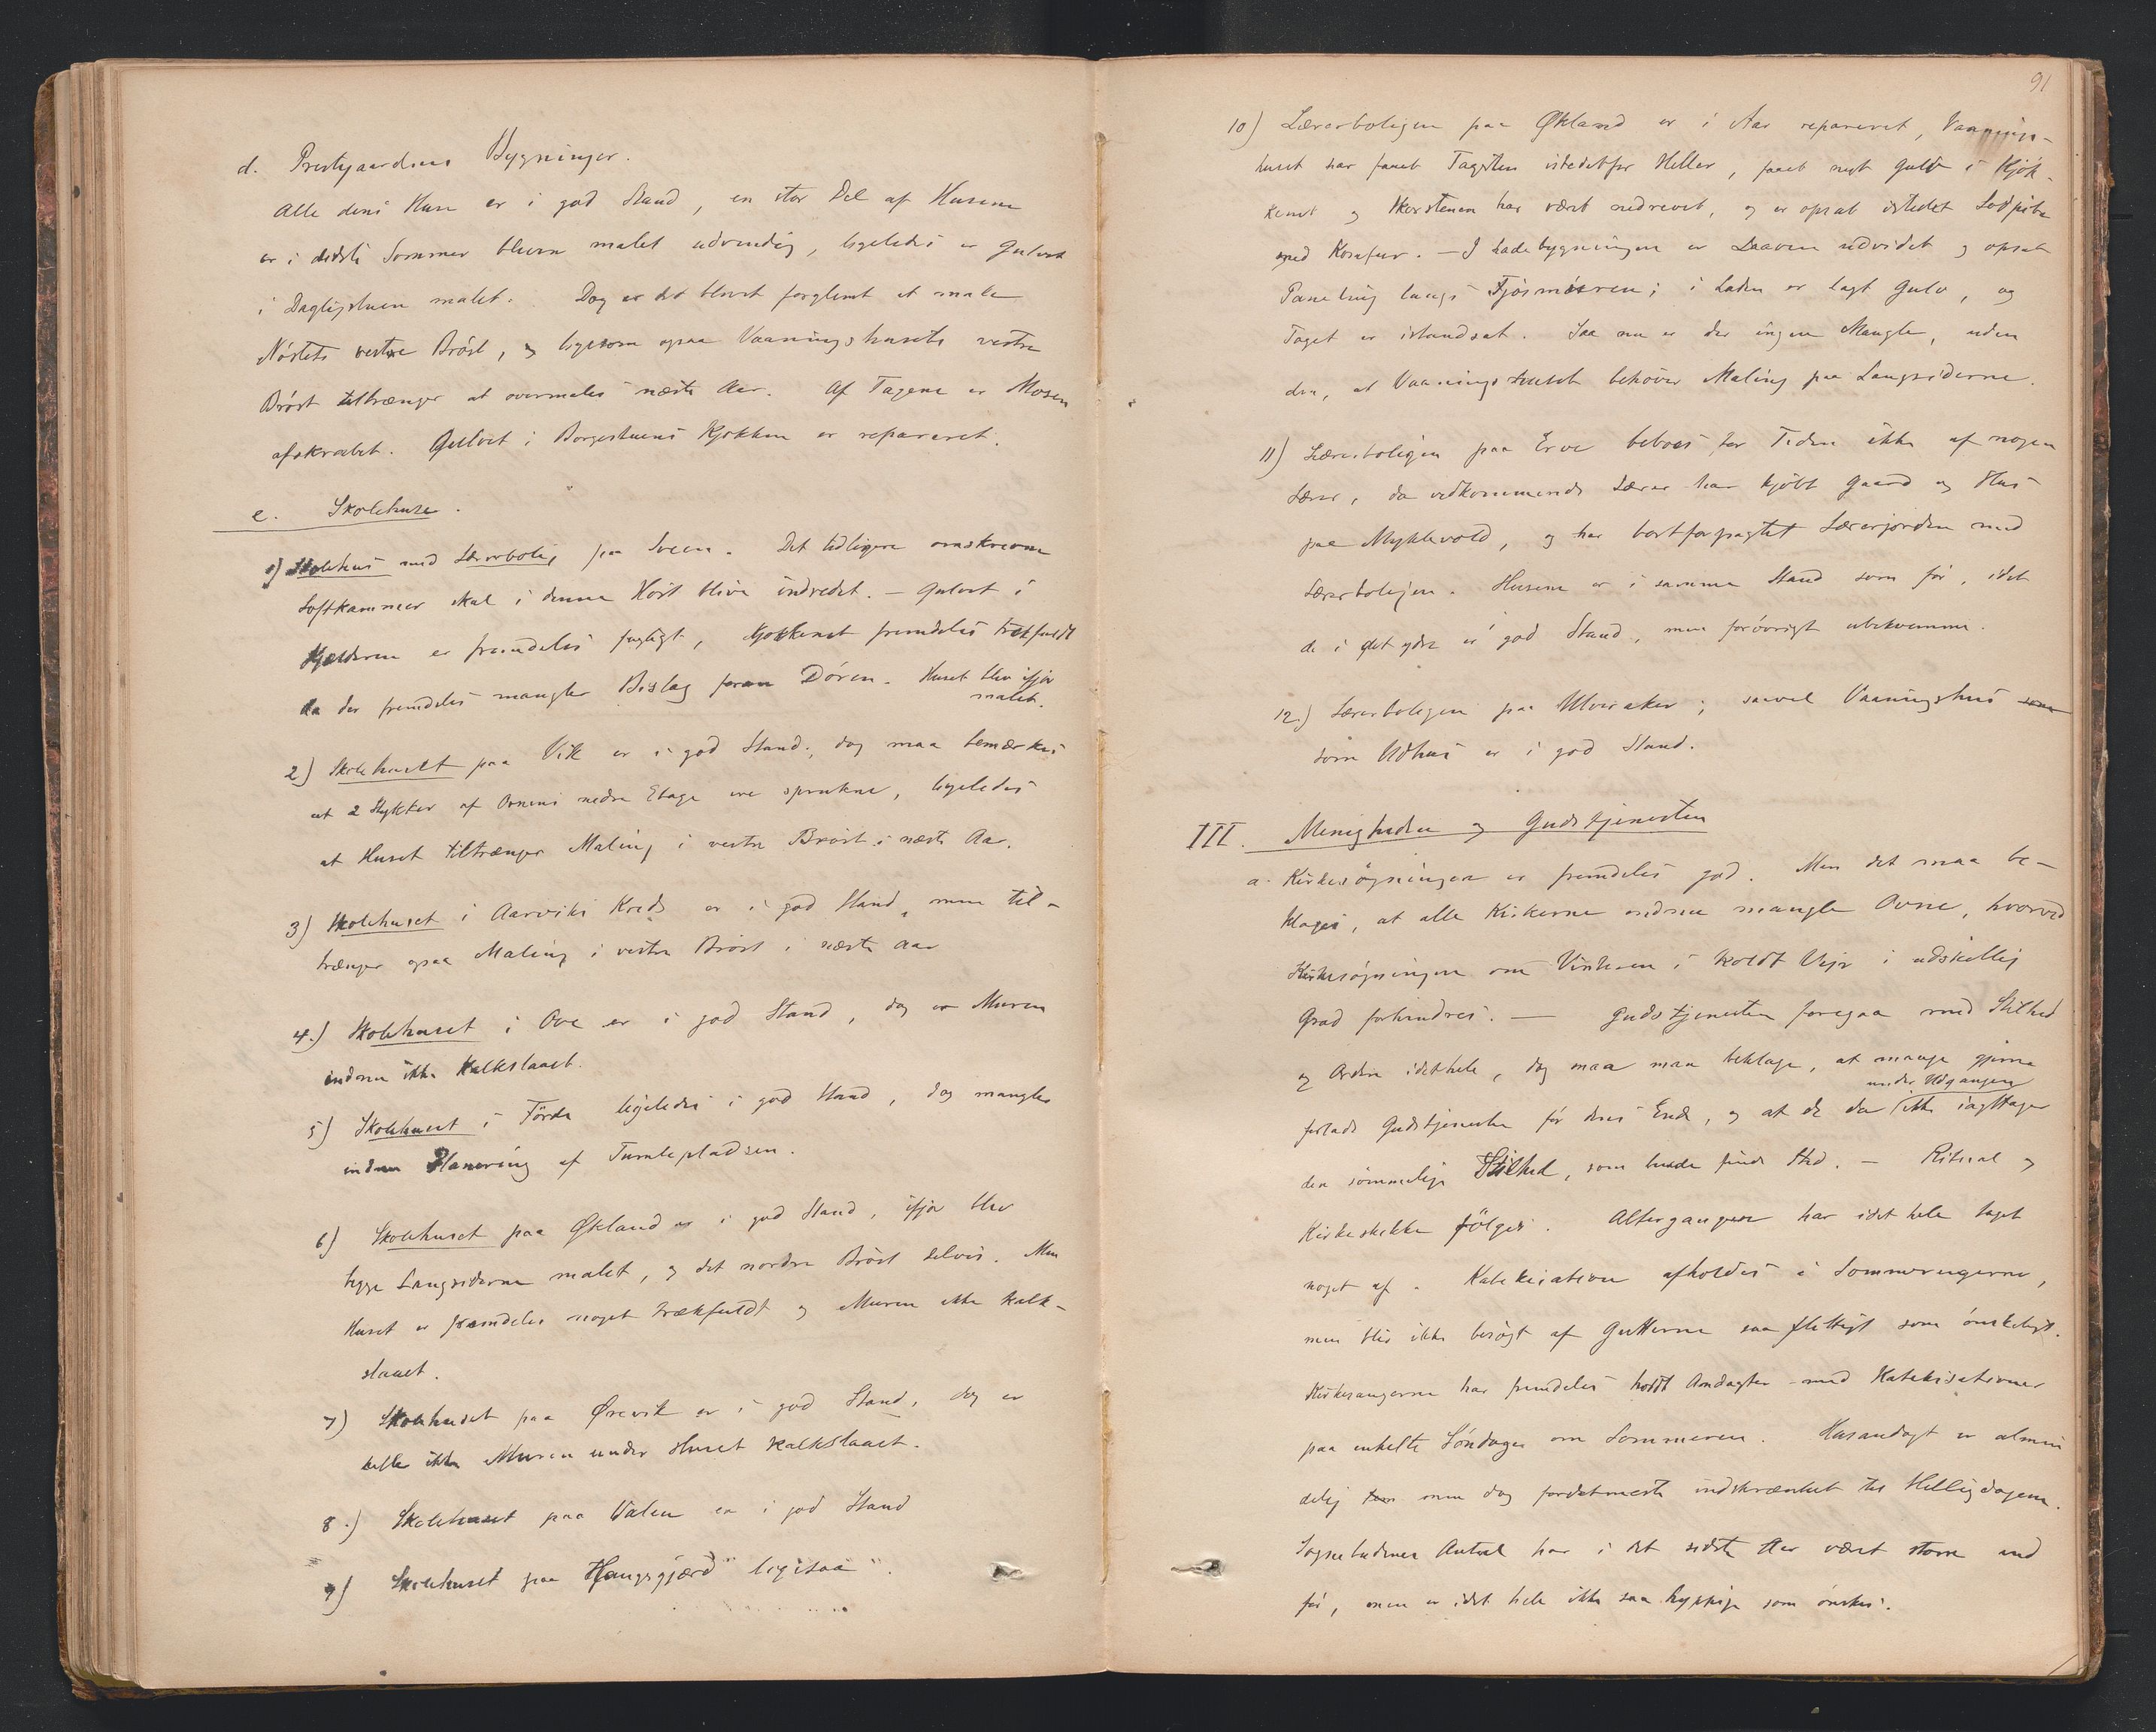 d. Prestgaardens Bygninger.
Alle dens Huse er i god Stand, en stor Del af Husene
er i sidste Sommer bleven malet udvendig, ligeledes er Gulvet
i Dagligstuen malet. Dog er det blevet forglemt at male
Nöstets vestre Bröst, og ligesom ogsaa Vaaningshusets vestre
Bröst tiltrænger at overmales næste Aar. Af Tagene er Mosen
afskrabet. Gulvet i Borgestuens Kjökken er repareret.
e. Skolehuse.
1) Skolehus med Lærerbolig paa Sveen. Det tidligere omskrevne
Loftkammer skal i denne Höst blive indredet. – Gulvet i
Kjælderen er fremdeles fugtigt, Kjökkenet fremdeles trækfuldt
da der fremdeles mangler Bislag foran Dören. Huset blev ifjor
malet.
2) Skolehuset paa Vik er i god Stand; dog maa bemærkes
at 2 Stykker af Ovnens nedre Etage ere sprukne, ligeledes
at Huset tiltrænger Maling i vestre Bröst i næste Aar.
3) Skolehuset i Aarviks Kreds er i god Stand, men til-
trænger ogsaa Maling i vestre Bröst i næste Aar
4.) Skolehuset i Ove er i god Stand, dog er Muren
endnu ikke Kalkslaaet.
5) Skolehuset i Förde ligeledes i god Stand, dog mangler
endnu Planering af Tumlepladsen.
6) Skolehuset paa Økland er i god Stand, ifjor blev
begge Langsiderne malet, og det nordre Bröst delvis. Men
Huset er fremdeles noget trækfuldt og Muren ikke kalk-
slaaet.
7) Skolehuset paa Ørevik er i god Stand, dog er
heller ikke Muren under Huset Kalkslaaet.
8.) Skolehuset paa Valen er i god Stand
9) Skolehuset paa Haugsgjærd ligesaa.
91
10) Lærerboligen paa Økland er i Aar repareret, Vaanings-
huset har faaet Tagsten istedetfor Heller, faaet nyt Gulv i Kjök-
kenet og Skorstenen har været nedrevet, og er opsat istedet
med Komfur. – I Ladebygningen er Laaven udvidet og opsat
Paneling langs Fjösmuren; i Laden er lagt Gulv, og
Taget er istandsat. Saa nu er der ingen Mangle, uden
den, at Vaaningshuset behöver Maling paa Langsiderne.
11) Lærerboligen paa Erve beboes for Tiden ikke af nogen
Lærer, da vedkommende Lærer har kjöbt Gaard og Hus
paa Myklevold, og har bortforpagtet Lærerjorden med
Lærerboligen. Husene er i samme Stand som för, idet
de i det ydre er i god Stand, men forövrigt ubekvemme.
12.) Lærerboligen paa Ulveraker; saavel Vaaningshus som
som Udhus er i god Stand.
III. Menigheden og Gudstjenesten
a. Kirkesögningen er fremdeles god. Men det maa be-
klages, at alle Kirkerne endnu mangle Ovne, hvorved
Kirkesögningen om Vinteren i koldt Vejr i adskillig
Grad forhindres. – Gudstjenesten foregaar med Stilhed
og Orden idethele, dog maa man beklage, at mange gjerne
under Udgangen
forlade Gudstjenesten för dens Ende, og at de da ikke iagttager
den sömmelige Stilhed, som burde finde Sted. – Ritual og
Kirkeskikke fölges. Altergangen har idethele taget
noget af. Katekisation afholdes i Sommerugerne,
men blir ikke besögt af Gutterne saa flittigt som önskeligt.
Kirkesangerne har fremdeles holdt Andagter med Katekisationer
paa enkelte Söndage om Sommeren. Husandagt er almin
delig men dog fordetmeste indskrænket til Helligdagene.
Sognebudenes Antal har i det sidste Aar været större end
för, men er idet hele ikke saa hyppige som önskes.